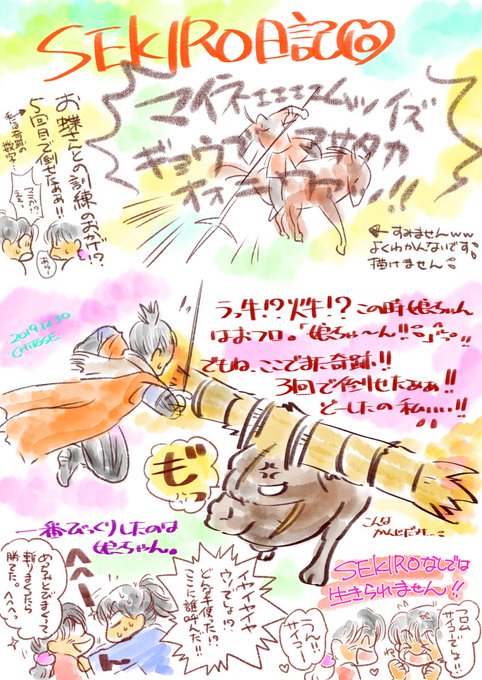 SEKIRO日記
マイネエエエエムゥイズ
ギョウブ マサタカ
オニワアアッ!!
お蝶さんとの訓練のおかげ!?
5回目で倒せたぁぁ!!
マジか!?
ええっ
すみませんww
よくわかんないです
描けません
2019.12.30
CHITOSE
うっ牛!?火牛!?この時娘ちゃん
はおフロ。「娘ちゃ〜ん!!」
でもね、ここでまた奇跡!!
3回で倒せたぁぁ!!
どーしたの私…!!
もっ
こんな
かんじだけ…
一番びっくりしたのは
娘ちゃん。
へへー
斬りまくったら
勝てた。へへっ
イヤイヤイヤ
ウソでしょ!?
どんな手使った!?
ここに誰呼んだ!!
SEKIROなしでは
生きられません!!
フロム
サイコーでしょ!!
うん!!
サイコー!